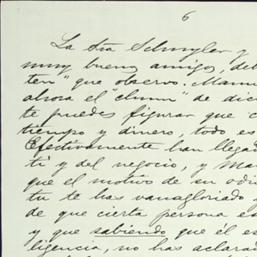 6
La tía Schuyler y
muy buenos amigos, del
ten" que observo. Mam
ahora el "chum" de dic
te puedes figurar que c
tiempo y dinero, todo es
Efectivamente han llegad
ti y del negocio, y Ma
que el motivo de su odi
tu te has vanagloriado
de que cierta persona es
y que sabiendo que él es
ligencia, no has aclara